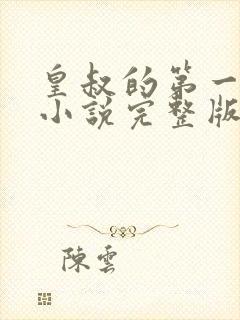 皇叔的第一
小說完整版
陳雲